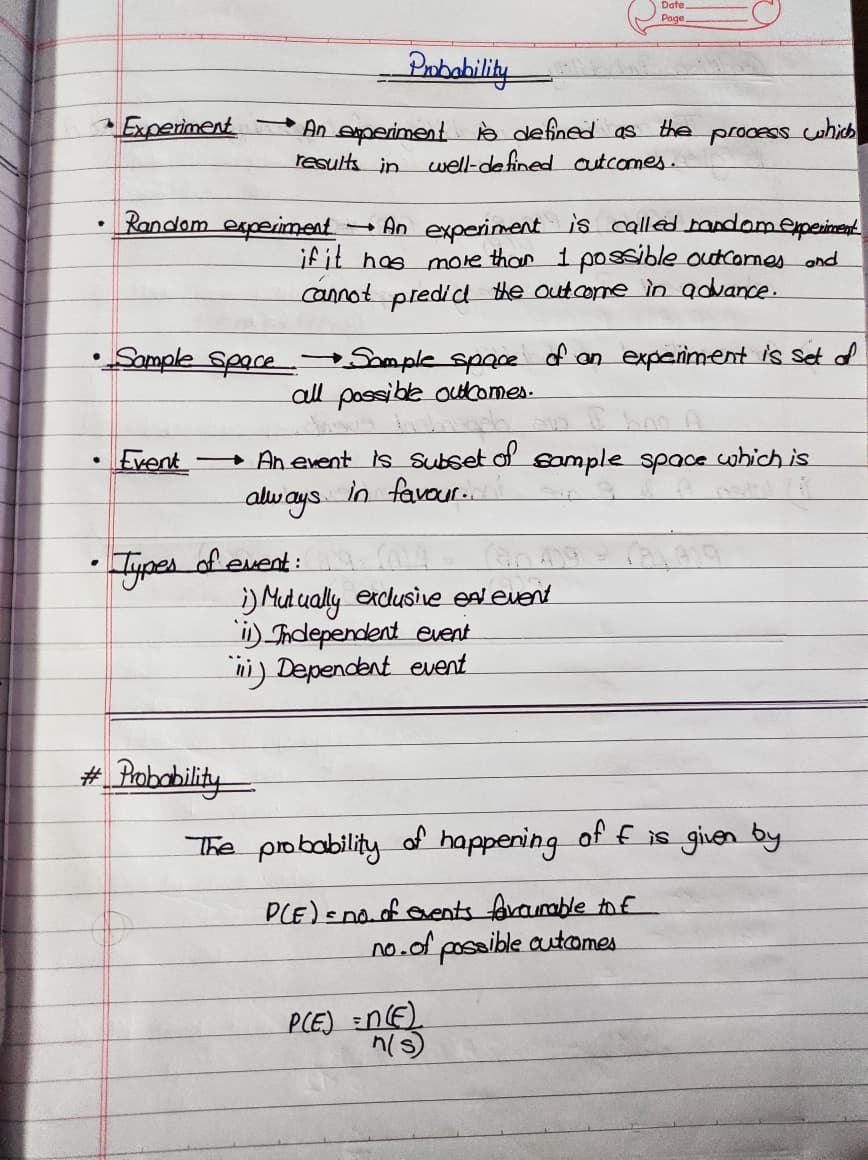 Date
Page
Probability
• Experiment → An experiment is defined as the process which
results in well-defined outcomes.
• Random experiment → An experiment is called random experiment
if it has more than 1 possible outcomes and
cannot predict the outcome in advance.
• Sample space → Sample space of an experiment is set of
all possible outcomes.
• Event → An event is subset of sample space which is
always in favour.
• Types of event:
i) Mutually exclusive event
ii) Independent event
iii) Dependent event
# Probability
The probability of happening of E is given by
P(E) = no. of events favourable to E
no. of possible outcomes
P(E) = n(E)
n(S)